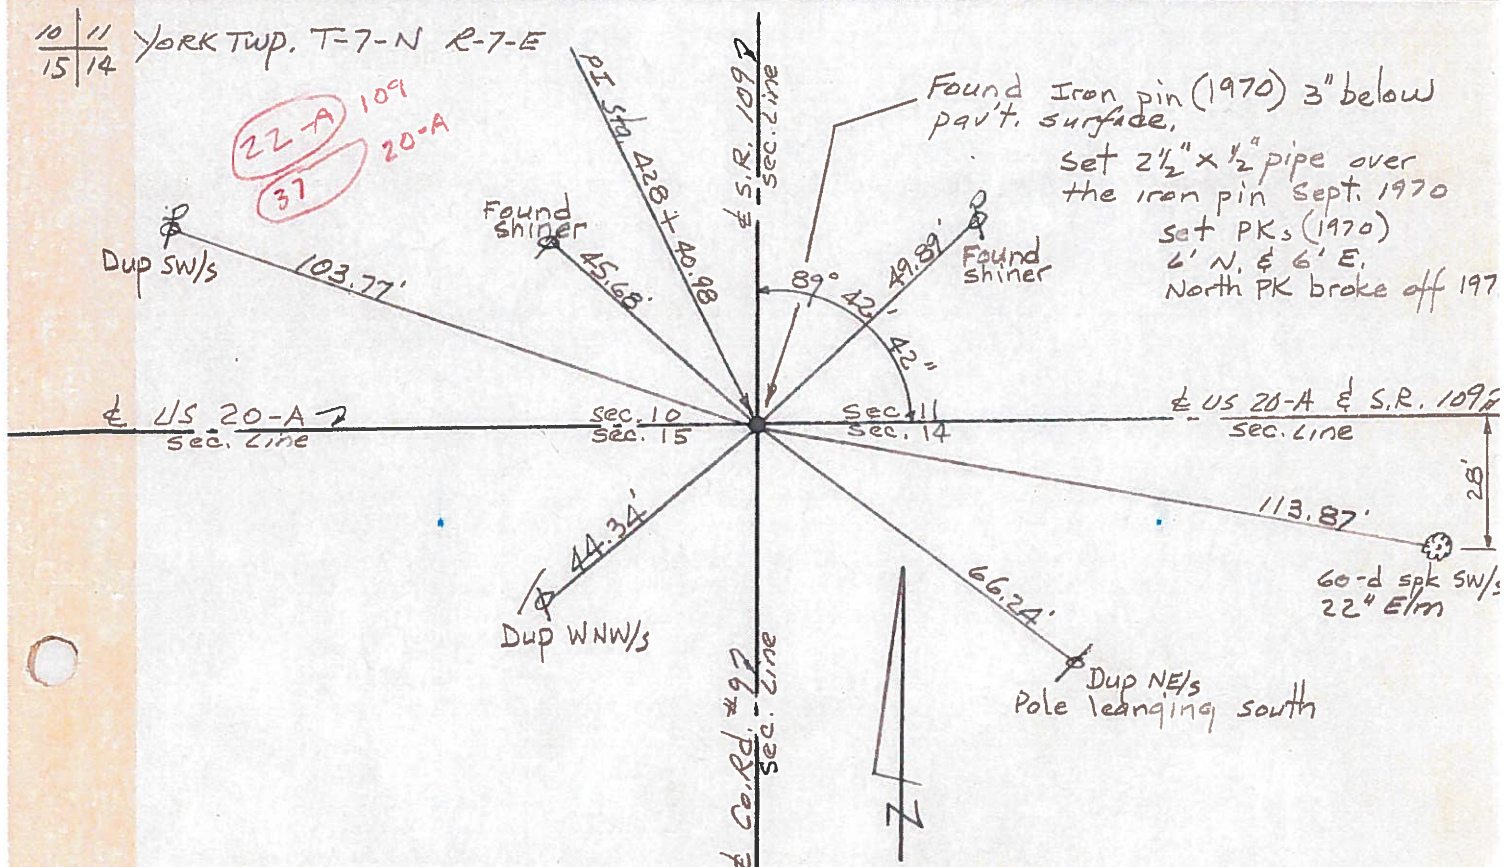 10 11
15 14
YORK TWP. T-7-N R-7-E
22-A 109
37 20-A
PI Sta. 428+40.98
℄ S.R. 109
Sec. Line
Found Iron pin (1970) 3" below
pav't. surface.
Set 2½" x ½" pipe over
the iron pin Sept. 1970
set PKs (1970)
6' N. & 6' E.
North PK broke off 197
Found
shiner
45.68'
Dup SW/s
103.77'
49.89'
Found
shiner
89° 42' 42"
℄ US 20-A
Sec. Line
Sec. 10
Sec. 15
Sec. 11
Sec. 14
℄ US 20-A & S.R. 109
Sec. Line
28'
113.87'
60-d spk SW/s
22" Elm
44.34'
Dup WNW/s
66.24'
Dup NE/s
Pole leanging south
℄ Co. Rd. #9
Sec. Line
N